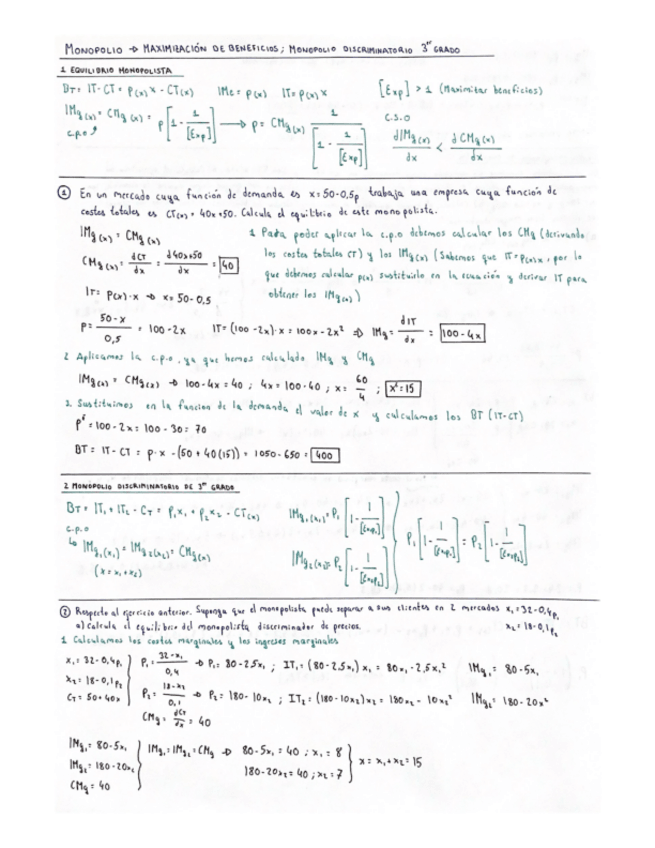 MONOPOLIO → MAXIMIZACIÓN DE BENEFICIOS; MONOPOLIO DISCRIMINATORIO 3er GRADO
1 EQUILIBRIO MONOPOLISTA
BT = IT - CT = p(x) x - CT(x) IMe = p(x) IT = p(x) x [Exp] > 1 (Maximizar beneficios)
IMg(x) = CMg(x) = p [1 - 1/[Exp]] → p = CMg(x) 1/[1 - 1/[Exp]] C.S.O
c.p.o dIMg(x)/dx < dCMg(x)/dx
① En un mercado cuya función de demanda es x = 50-0,5p trabaja una empresa cuya función de
costes totales es CT(x) = 40x+50. Calcula el equilibrio de este monopolista.
IMg(x) = CMg(x)
CMg(x) = dCT/dx = d40x+50/dx = 40
IT = p(x)·x → x = 50-0,5
1 Para poder aplicar la c.p.o debemos calcular los CMg (derivando
los costes totales CT) y los IMg(x) (Sabemos que IT = p(x)x, por lo
que debemos calcular p(x) sustituirlo en la ecuación y derivar IT para
obtener los IMg(x))
p = 50-x/0,5 = 100-2x IT = (100-2x)·x = 100x-2x² ⇒ IMg = dIT/dx = 100-4x
2 Aplicamos la c.p.o, ya que hemos calculado IMg y CMg
IMg(x) = CMg(x) → 100-4x = 40 ; 4x = 100-40 ; x = 60/4 ; x^E = 15
3. Sustituimos en la funcion de la demanda el valor de x y calculamos los BT (IT-CT)
p^E = 100-2x = 100-30 = 70
BT = IT - CT = p·x - (50 + 40(15)) = 1050-650 = 400
2 MONOPOLIO DISCRIMINATORIO DE 3er GRADO
BT = IT₁ + IT₂ - CT = P₁x₁ + P₂x₂ - CT(x) IMg₁(x₁) = P₁ [1 - 1/[Exp₁]]
c.p.o
↳ IMg₁(x₁) = IMg₂(x₂) = CMg(x) IMg₂(x₂) = P₂ [1 - 1/[Exp₂]] } P₁ [1 - 1/[Exp₁]] = P₂ [1 - 1/[Exp₂]]
(x = x₁+x₂)
② Respecto al ejercicio anterior. Suponga que el monopolista puede separar a sus clientes en 2 mercados x₁ = 32-0,4p₁
a) Calcula el equilibrio del monopolista discriminador de precios. x₂ = 18-0,1p₂
1 Calculamos los costes marginales y los ingresos marginales
x₁ = 32-0,4p₁ P₁ = 32-x₁/0,4 → P₁ = 80-2,5x₁ ; IT₁ = (80-2,5x₁) x₁ = 80x₁-2,5x₁² IMg₁ = 80-5x₁
x₂ = 18-0,1p₂ P₂ = 18-x₂/0,1 → P₂ = 180-10x₂ ; IT₂ = (180-10x₂)x₂ = 180x₂-10x₂² IMg₂ = 180-20x²
CT = 50+40x CMg = dCT/dx = 40
IMg₁ = 80-5x₁ IMg₁ = IMg₂ = CMg → 80-5x₁ = 40 ; x₁ = 8
IMg₂ = 180-20x₂ 180-20x₂ = 40 ; x₂ = 7 } x = x₁+x₂ = 15
CMg = 40